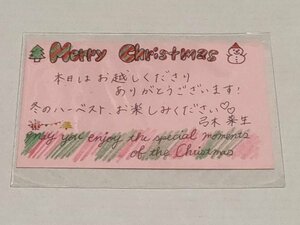 Merry Christmas
本日はお越しくださり
ありがとうございます!
冬のハーベスト、お楽しみください♡♡
弓木 菜生
may you enjoy the special moments
of the Christmas